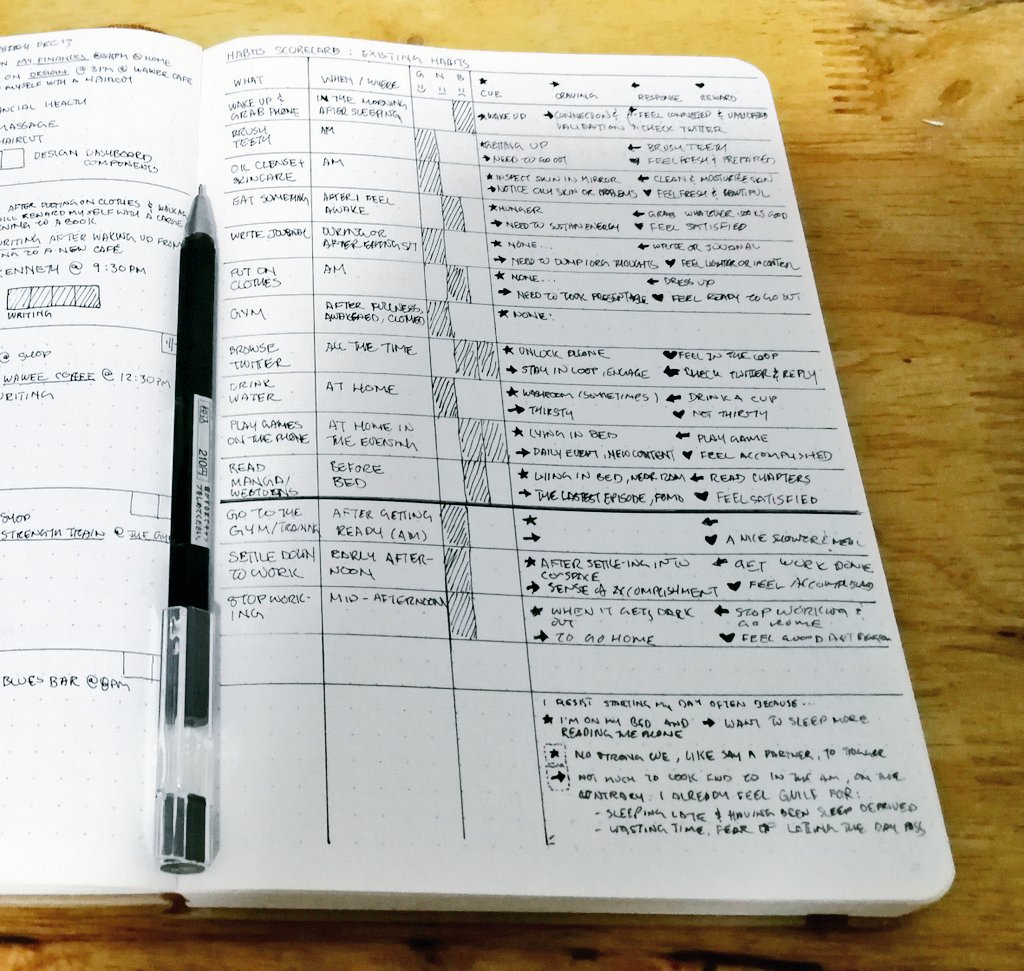 DEC 13
ON MY FINANCES @ HOME
ON DESIGN @ 3PM @ WAWEE CAFE
MYSELF WITH A HAIRCUT
HEALTH
MASSAGE
HAIRCUT
DESIGN DASHBOARD
COMPONENTS
AFTER PUTTING ON CLOTHES &
REWARD MYSELF WITH A
TO A BOOK
WRITING AFTER WAKING UP FROM
TO A NEW CAFE
KENNETH @ 9:30PM
WRITING
@ SHOP
WAWEE COFFEE @ 12:30PM
WRITING
SHOP
STRENGTH TRAIN @ THE GYM
BLUES BAR @ 8PM
HABITS SCORECARD: EXISTING HABITS
WHAT
WHEN / WHERE
G N B
CUE
CRAVING
RESPONSE
REWARD
WAKE UP &
GRAB PHONE
IN THE MORNING
AFTER SLEEPING
★ WAKE UP → CONNECTION &
VALIDATION
FEEL CONNECTED & VALIDATED
CHECK TWITTER
BRUSH
TEETH
AM
★ GETTING UP ← BRUSH TEETH
→ NEED TO GO OUT ♥ FEEL FRESH & PREPARED
OIL CLENSE +
SKINCARE
AM
★ INSPECT SKIN IN MIRROR ← CLEAN & MOISTURE SKIN
→ NOTICE OILY SKIN OR PROBLEMS ♥ FEEL FRESH & BEAUTIFUL
EAT SOMETHING
AFTER I FEEL
AWAKE
★ HUNGER ← GRAB WHATEVER IS GOOD
→ NEED TO SUSTAIN ENERGY ♥ FEEL SATISFIED
WRITE JOURNAL
DURING OR
AFTER EATING
★ NONE... ← WRITE OR JOURNAL
→ NEED TO DUMP/ORG THOUGHTS ♥ FEEL LIGHTER OR IN CONTROL
PUT ON
CLOTHES
AM
★ NONE... ← DRESS UP
→ NEED TO LOOK PRESENTABLE ♥ FEEL READY TO GO OUT
GYM
AFTER FULLNESS,
AWAKENED, CLOTHED
★ NONE.
BROWSE
TWITTER
ALL THE TIME
★ UNLOCK PHONE ♥ FEEL IN THE LOOP
→ STAY IN LOOP, ENGAGE ← CHECK TWITTER & REPLY
DRINK
WATER
AT HOME
★ WASHROOM (SOMETIMES) ← DRINK A CUP
→ THIRSTY ♥ NOT THIRSTY
PLAY GAMES
ON THE PHONE
AT HOME IN
THE EVENING
★ LYING IN BED ← PLAY GAME
→ DAILY EVENT, NEW CONTENT ♥ FEEL ACCOMPLISHED
READ
MANGA/
WEBTOONS
BEFORE
BED
★ LYING IN BED, NEAR 12AM ← READ CHAPTERS
→ THE LASTEST EPISODE, FOMO ♥ FEEL SATISFIED
GO TO THE
GYM/TRAINING
AFTER GETTING
READY (AM)
★ ←
→ ♥ A NICE SHOWER & MEAL
SETTLE DOWN
TO WORK
EARLY AFTER-
NOON
★ AFTER SETTLE-ING INTO
CO-SPACE
← GET WORK DONE
→ SENSE OF ACCOMPLISHMENT ♥ FEEL ACCOMPLISHED
STOP WORK-
ING
MID-AFTERNOON
★ WHEN IT GETS DARK
OUT
← STOP WORKING &
GO HOME
→ TO GO HOME ♥ FEEL GOOD
I RESIST STARTING MY DAY OFTEN BECAUSE...
★ I'M ON MY BED AND → WANT TO SLEEP MORE
READING ALONE
★ NO STRONG CUE, LIKE SAY A PARTNER, TO TRIGGER
→ NOT MUCH TO LOOK FWD TO IN THE AM, ON THE
CONTRARY I ALREADY FEEL GUILT FOR:
- SLEEPING LATE & HAVING BEEN SLEEP DEPRIVED
- WASTING TIME, FEAR OF LETTING THE DAY PASS